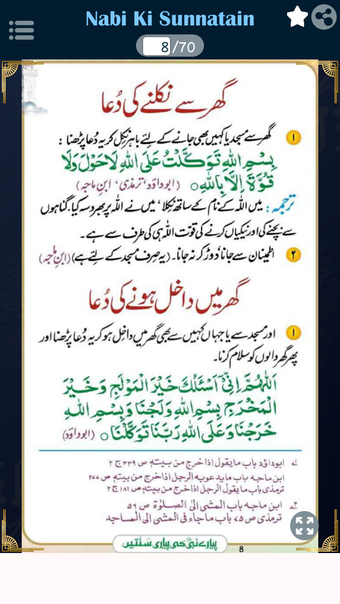 Nabi Ki Sunnatain
8/70
گھر سے نکلنے کی دُعا
۱ گھر سے مسجد یا کہیں بھی جانے کے لئے باہر نکل کر یہ دُعا پڑھنا :
بِسْمِ اللّٰهِ تَوَكَّلْتُ عَلَى اللّٰهِ لَاحَوْلَ وَلَا
قُوَّةَ اِلَّا بِاللّٰهِ ○ (ابوداؤد، ترمذی، ابن ماجہ)
ترجمہ : میں اللہ کے نام کے ساتھ نکلا، میں نے اللہ پر بھروسہ کیا، گناہوں
سے بچنے کی اور نیکیاں کرنے کی قوت اللہ ہی کی طرف سے ہے۔
۲ اطمینان سے جانا دوڑ کر نہ جانا۔ (یہ صرف مسجد کے لئے ہے) (ابن ماجہ)
گھر میں داخل ہونے کی دُعا
۱ اور مسجد سے یا جہاں کہیں سے بھی گھر میں داخل ہو کر یہ دُعا پڑھنا اور
پھر گھر والوں کو سلام کرنا۔
اَللّٰهُمَّ اِنِّىْ اَسْئَلُكَ خَيْرَ الْمَوْلَجِ وَخَيْرَ
الْمَخْرَجِ بِسْمِ اللّٰهِ وَلَجْنَا وَبِسْمِ اللّٰهِ
خَرَجْنَا وَعَلَى اللّٰهِ رَبِّنَا تَوَكَّلْنَا ○ (ابوداؤد)
ابوداؤد باب مایقول اذا خرج من بیتہ ص ۳۳۹ ج ۲
ابن ماجہ باب ما یدعو بہ الرجل اذا خرج من بیتہ ص ۲۷۷
ترمذی باب مایقول الرجل اذا خرج من بیتہ ص ۱۸۱ ج ۲
ابن ماجہ باب المشی الی الصلوٰۃ ص ۵۶
ترمذی ص ۷۵، باب ماجاء فی المشی الی المساجد
پیارے نبی کی پیاری سنتیں
8